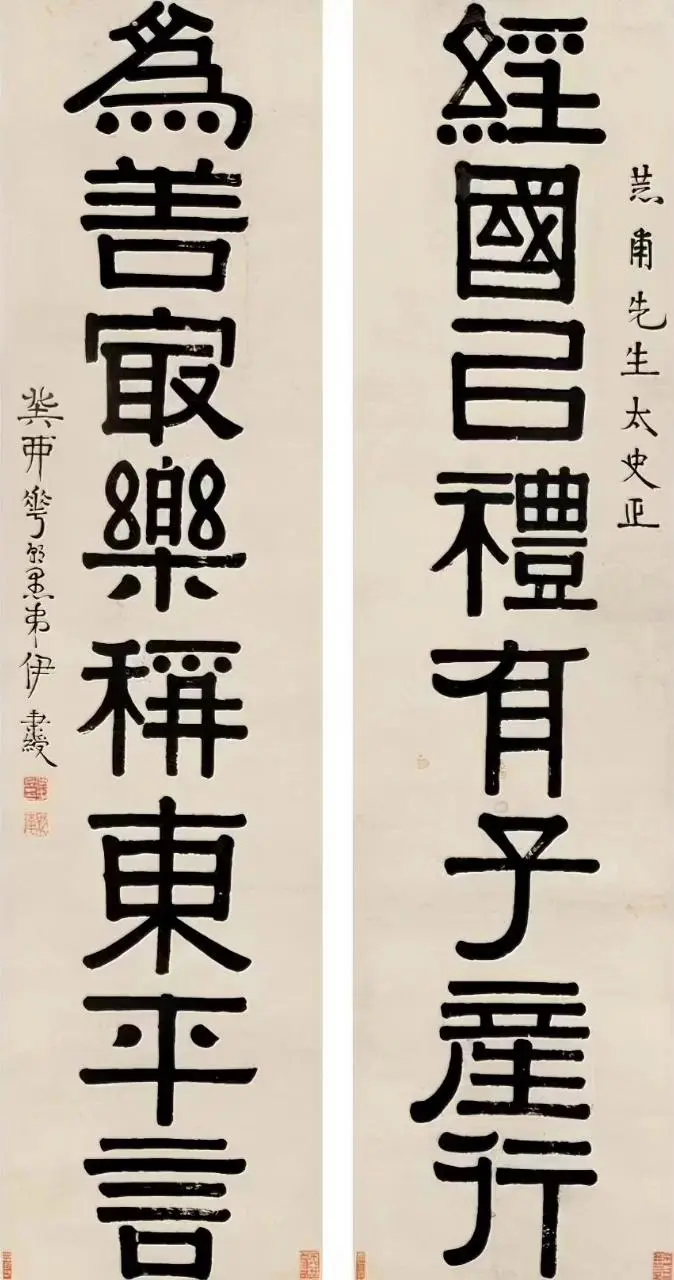 甫先生太史正
經國㠯禮有子產行
為善㝡樂稱東平言
癸丣華朝愚弟伊秉綬